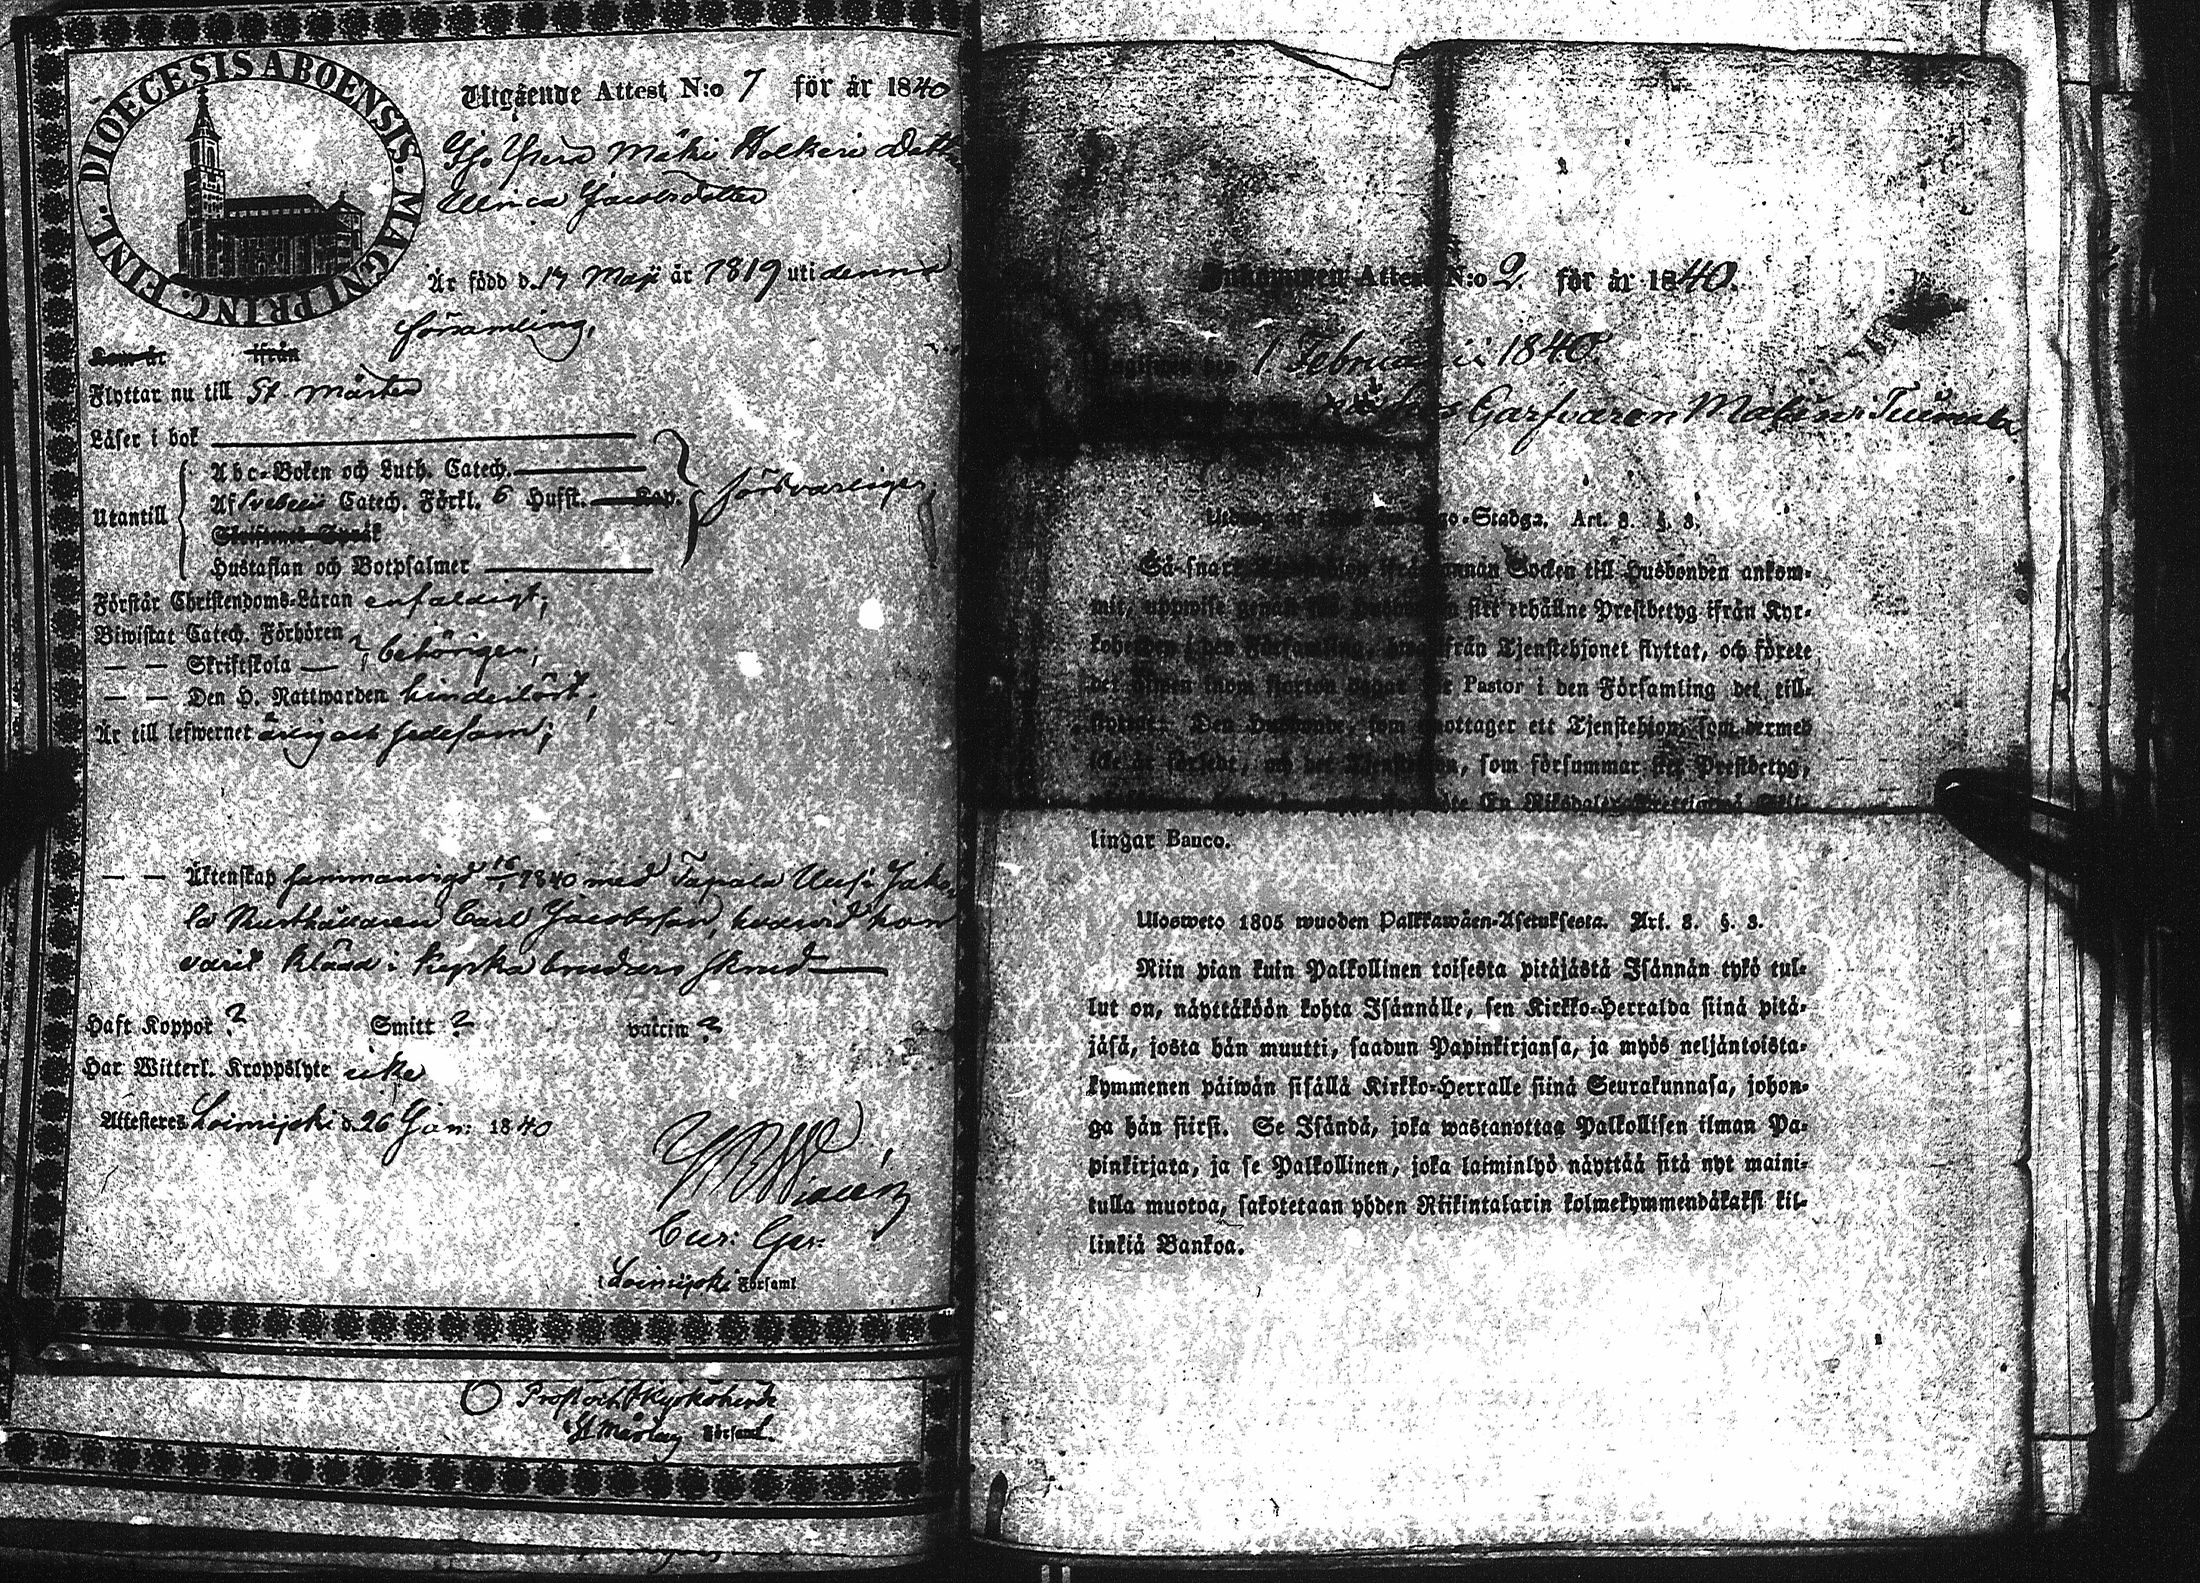 DIOECESIS ABOENSIS. MAGNI PRINC. FINL.
Utgående Attest N:o 7 för år 1840
Mäki Dott
Ulrica Jacobsdotter
Är född d. 17 Maji år 1819 uti denna
församling,
Som är ifrån
Flyttar nu till St. Mårtens
Läser i bok
Utantill
Abc-Boken och Luth. Catech.
Af Svebelii Catech. Förkl. 6 Hufst. Kap.
försvarligen,
Skriftenes Språk
Hustaflan och Botpsalmer
Förstår Christendoms-Läran enfaldigt;
Biwistat Catech. Förhören
— — Skriftskola — behörigen;
— — Den H. Nattwarden hinderlöst;
Är till lefwernet ärlig och sedesam;
— — Äktenskap sammanvigd d. 16/1 1840 med Tapala Uusi Jako
Carl Jacobsson, hvarvid hon
varit klädd i kyska brudars skrud
Haft Koppor ? Smitt ? vaccin ?
Har Witterl. Kroppslyte icke
Attesteres Loimijoki d. 26 Jan: 1840
Cur: Ger:
i Loimijoki Församl
Prost och Kyrkoherde
i St Mårtens Församl.
Inkommen Attest N:o 2 för år 1840.
1 Februarii 1840.
Garfvaren
Utdrag af Lego-Stadga. Art. 8. §. 3.
Så-snart annan Socken till Husbonden ankom-
mit, uppwise genast sitt erhållne Prestbetyg ifrån Kyr-
koherden i den Församling, ifrån Tjenstehjonet flyttat, och förete
det inom fjorton dagar för Pastor i den Församling det till-
flyttat. Den Husbonde, som emottager ett Tjenstehjon, som dermed
icke är försedt, och det Tjenstehjon, som försummar sitt Prestbetyg,
böte En Riksdaler Skil-
lingar Banco.
Ulosweto 1805 wuoden Palkkawäen-Asetuksesta. Art. 8. §. 3.
Niin pian kuin Palkollinen toisesta pitäjästä Isännän tykö tul-
lut on, näyttäköön kohta Isännälle, sen Kirkko-Herralda siinä pitä-
jäsä, josta hän muutti, saadun Papinkirjansa, ja myös neljäntoista-
kymmenen päiwän sisällä Kirkko-Herralle siinä Seurakunnasa, johon-
ga hän siirsi. Se Isändä, joka wastanottaa Palkollisen ilman Pa-
pinkirjata, ja se Palkollinen, joka laiminlyö näyttää sitä nyt maini-
tulla muotoa, sakotetaan yhden Riikintalarin kolmekymmendäkaksi kil-
linkiä Bankoa.